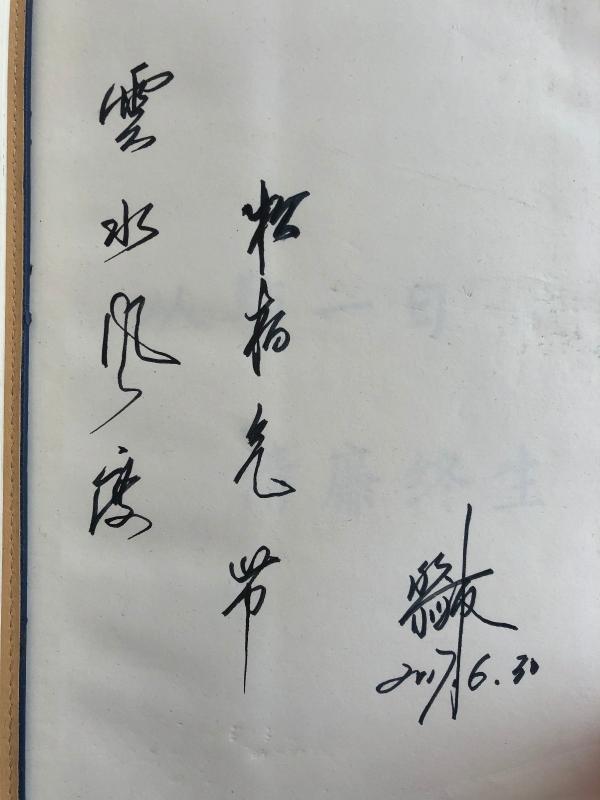 雲水风度
松柏气节
2017.6.30